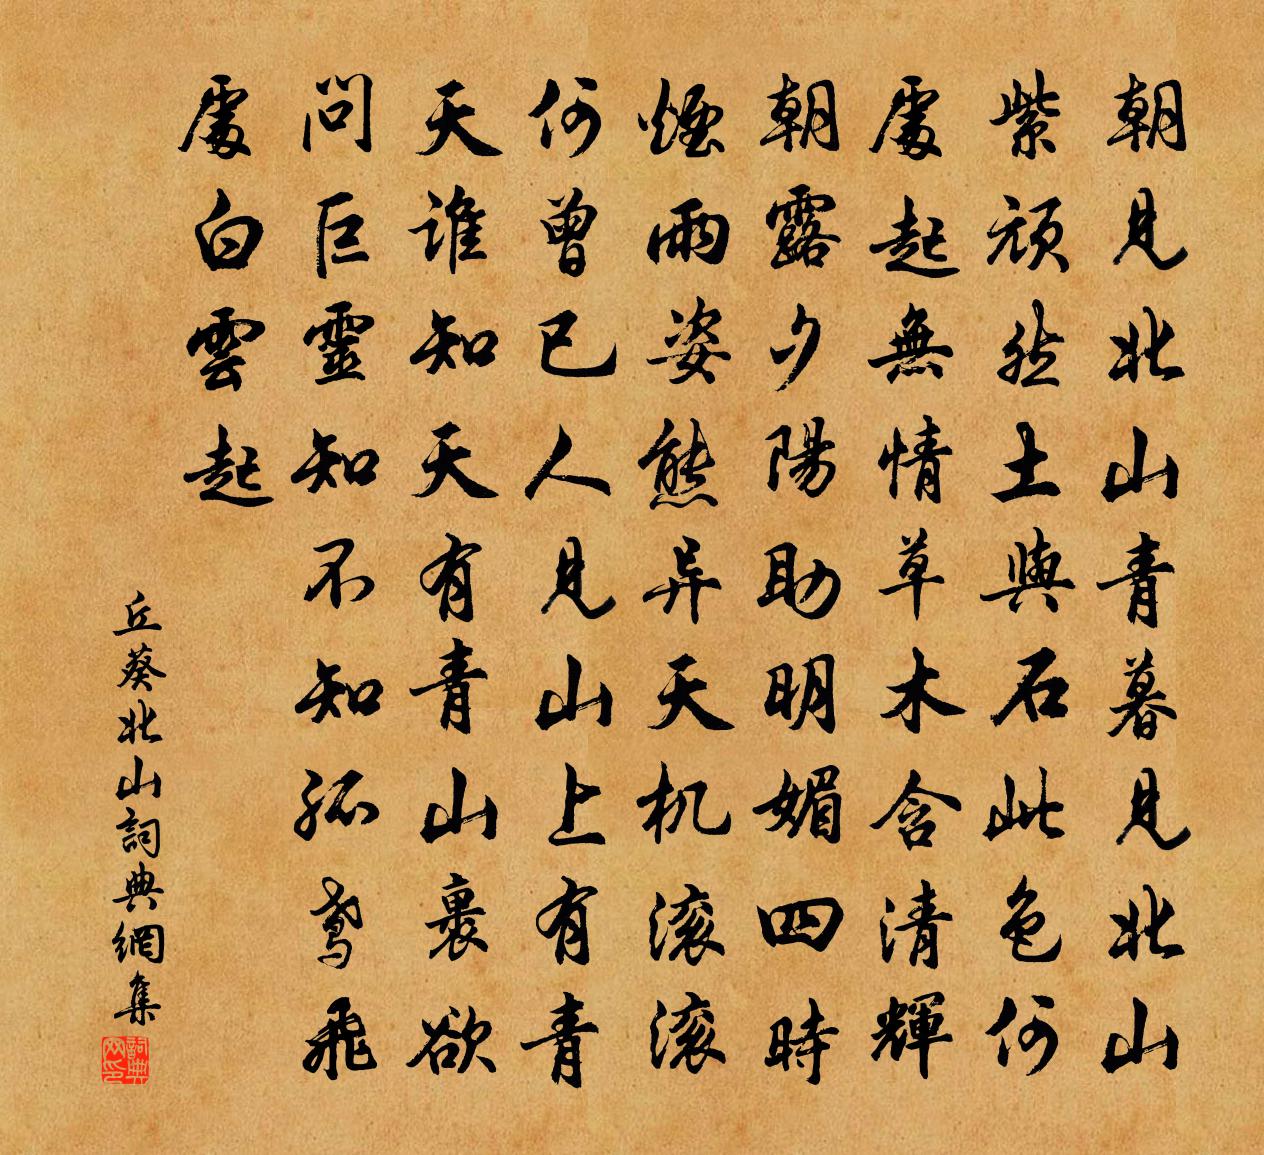 朝見北山青暮見北山
紫頑然土與石此色何
處起無情草木含清輝
朝露夕陽助明媚四時
煙雨姿態异天机滚滚
何曾已人見山上有青
天誰知天有青山裏欲
問巨靈知不知孤鸢飛
處白雲起
丘葵北山詞典網集
詞典网印